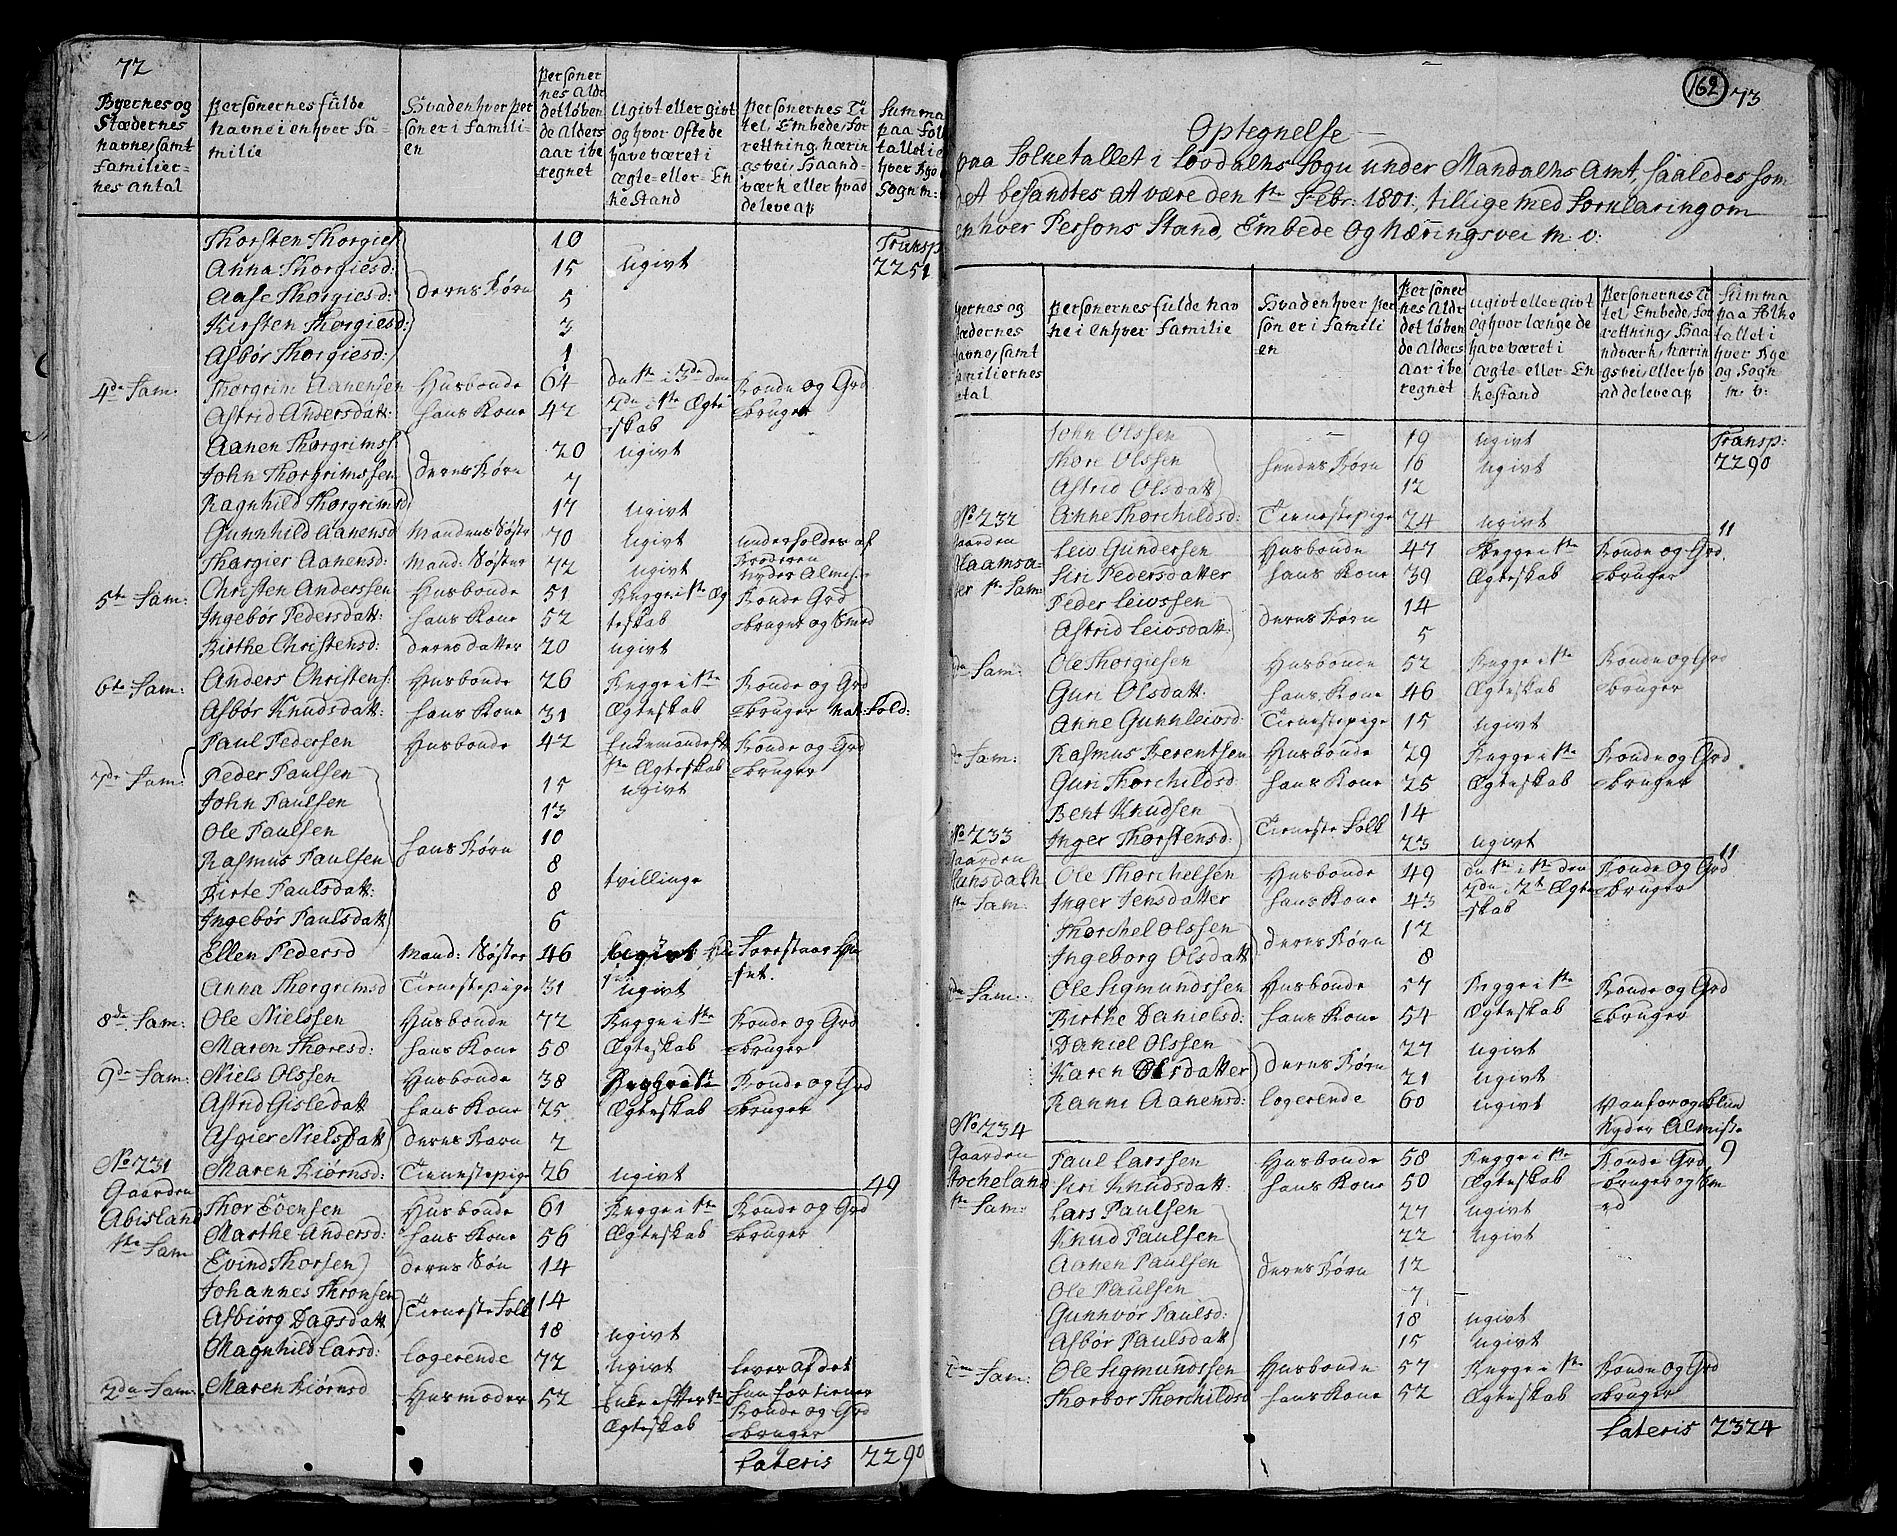 72
Byernes og Stædernes Navne, samt Familiernes Antal | Personernes fulde Navne i en hver Familie | Hvad en hver Person er i Familien | Personernes Aldr det løbende Alders aar iberegnet | Ugivt eller givt og hvor Ofte de have været i Ægte- eller Enkestand | Personernes Titel, Embede, Forrettning, Næringsvei, Haandværk eller hvad de leve af | Summa paa Folketallet i en hver Bye og Sogn m:
Thorsten Thorgies | 10 | Transp.
Anna Thorgiesd: | 15 | Ugivt | 2251
Aase Thorgiesd: | deres Børn | 5
Kirsten Thorgiesd: | 3
Asbør Thorgiesd: | 1
4de Fam: | Thorgrim Aanensen | Husbonde | 64 | den 1te i 3de den | Bonde og Grd
Astrid Andersdatt: | hans Kone | 42 | 2den i 1te Ægte | bruger
skab
Aanen Thorgrims: | 20 | Ugivt
John Thorgrimssen | deres Børn | 7
Ragnhild Thorgrimsd | 17 | Ugivt
Gunnhild Aanensd | Mandens Søster | 70 | Ugivt | underholdes af Broderen
Thargier Aanensd: | Mand: Søster | 72 | Ugivt | Nyder Almis:
5te Fam: | Christen Anderssen | Husbonde | 51 | Begge i 1te Æg | Bonde Grd
Ingebør Pedersdatt: | hans Kone | 52 | teskab | bruger og Smed
Birthe Christensd: | deres datter | 20 | Ugivt
6te Fam: | Anders Christens: | Husbonde | 26 | Begge i 1te | Bonde og Grd
Asbør Knudsdatt: | hans Kone | 31 | Ægteskab | bruger Nat: Sold:
7de Fam: | Paul Pedersen | Husbonde | 42 | Enkemand eft | Bonde og Grd
Peder Paulsen | 15 | 1te Ægteskab | bruger
Ugivt
John Paulsen | 13
Ole Paulsen | 10
Rasmus Paulsen | hans Børn | 8
Birte Paulsdatt: | 8 | tvillinge
Ingebør Paulsdatt | 6
Ellen Pedersd | Mand: Søster | 46 | Ugivt | Forestaar Huset.
Anna Thorgrimsd | Tienestepige | 31 | Ugivt
8de Fam: | Ole Nielssen | Husbonde | 72 | Begge i 1te | Bonde og Grd
Maren Thoresd: | hans Kone | 58 | Ægteskab | bruger
9de Fam: | Niels Olssen | Husbonde | 38 | Begge i 1te | Bonde og Grd
Astrid Gisledatt | hans Kone | 25 | Ægteskab | bruger
Asgier Nielsdatt | deres Barn | 2
No 231 | Maren Biørnsd: | Tienestepige | 26 | Ugivt | 49
Gaarden Abisland 1te Fam | Thor Evensen | Husbonde | 61 | Begge i 1te | Bonde og Grd
Marthe Andersd: | hans Kone | 56 | Ægteskab | bruger
Evind Thorsen | deres Søn | 14
Johannes Thronsen | Tieneste Folk | 14
Asbiørg Dagsdatt | 18 | Ugivt
Magnhild Larsd: | Logerende | 72 | Ugivt | lever af det hun fortiener
2den Fam: | Maren Biørnsd | Husmoder | 52 | Enke efter 1te | Bonde og Grd
Ægteskab | bruger
Lateris | 2290
162 73
Optegnelse
paa Folketallet i Løvdahls Sogn under Mandahls Amt, saaledes som
det befandtes at være den 1te Febr: 1801, tillige med Forklaring om
en hver Persons Stand, Embede og Næringsvei m: v:
Byernes og Stædernes Navne, samt Familiernes Antal | Personernes fulde Navne i en hver Familie | Hvad en hver Person er i Familien | Personernes Aldr det løbende Alders Aar iberegnet | Ugivt eller givt og hvor længe de have været i Ægte- eller Enkestand | Personernes Titel, Embede, Forrettning, Haandværk, Næringsvei, eller hvad de leve af | Summa paa Folketallet i hver Bye og Sogn m: v:
John Olssen | 19 | Ugivt | Transp:
Thore Olssen | hendes Børn | 16 | Ugivt | 2290
Astrid Olsdatt | 12
No 232 | Anne Thorchildsd: | Tienestepige | 24 | Ugivt | 11
Gaarden 1te Fam: | Leiv Gundersen | Husbonde | 47 | Begge i 1te | Bonde og Grd
Siri Pedersdatter | hans Kone | 39 | Ægteskab | bruger
Peder Leivssen | deres Børn | 14
Astrid Leivsdatt: | 5
Fam: | Ole Thorgiesen | Husbonde | 52 | Begge i 1te | Bonde og Grd
Guri Olsdatt: | hans Kone | 46 | Ægteskab | bruger
Anne Gunnleivsd: | Tienestepige | 15 | Ugivt
Fam: | Rasmus Berentsen | Husbonde | 29 | Begge i 1te | Bonde og Grd
Guri Thorchildsd: | hans Kone | 25 | Ægteskab | bruger
Bent Knudsen | Tieneste Folk | 14
No 233 | Inger Thorstensd: | 23 | Ugivt | 11
Gaarden 1te Fam: | Ole Thorchelsen | Husbonde | 49 | den 1te i 1te den | Bonde og Grd
Inger Jensdatter | hans Kone | 43 | 2den i 2t Ægte | bruger
skab
Thorchel Olssen | deres Børn | 12
Ingeborg Olsdatt | 8
2den Fam: | Ole Sigmundssen | Husbonde | 57 | Begge i 1te | Bonde og Grd
Birthe Danielsd: | hans Kone | 54 | Ægteskab | bruger
Daniel Olssen | deres Børn | 27 | Ugivt
Karen Olsdatter | 21 | Ugivt
Ranni Aanensd: | Logerende | 60 | Ugivt | Vanfør og blind
Nyder Almisse
No 234 | 9
Gaarden Hocheland 1te Fam: | Paul Larssen | Husbonde | 58 | Begge i 1te | Bonde Grd
Siri Knudsdatt: | hans Kone | 50 | Ægteskab | bruger og Sm
ed
Lars Paulsen | 27 | Ugivt
Knud Paulsen | 22 | Ugivt
Aanen Paulsen | deres Børn | 12
Ole Paulsen | 7
Gunnvor Paulsd: | 18 | Ugivt
Asbør Paulsdatt | 15 | Ugivt
2den Fam: | Ole Sigmundssen | Husbonde | 57 | Begge i 1te | Bonde og Grd
Thorbor Thorchildsd | hans Kone | 52 | Ægteskab | bruger
Lateris | 2324